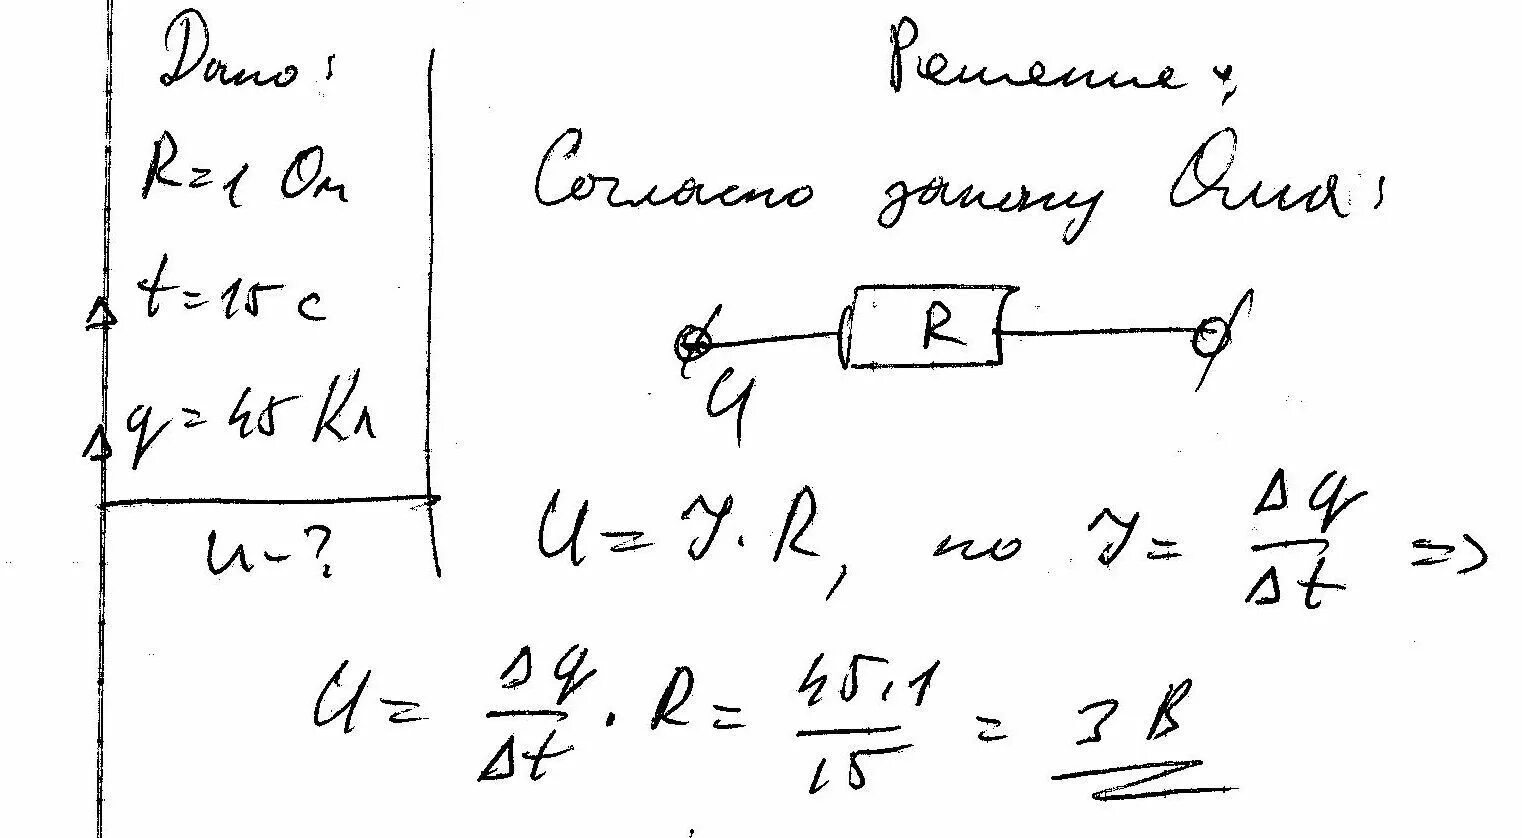 Дано:
R = 1 Ом
Δt = 15 с
Δq = 45 Кл
U - ?
Решение:
Согласно закону Ома:
R
U
U = I · R, но I = Δq/Δt =>
U = Δq/Δt · R = 45·1/15 = 3 В